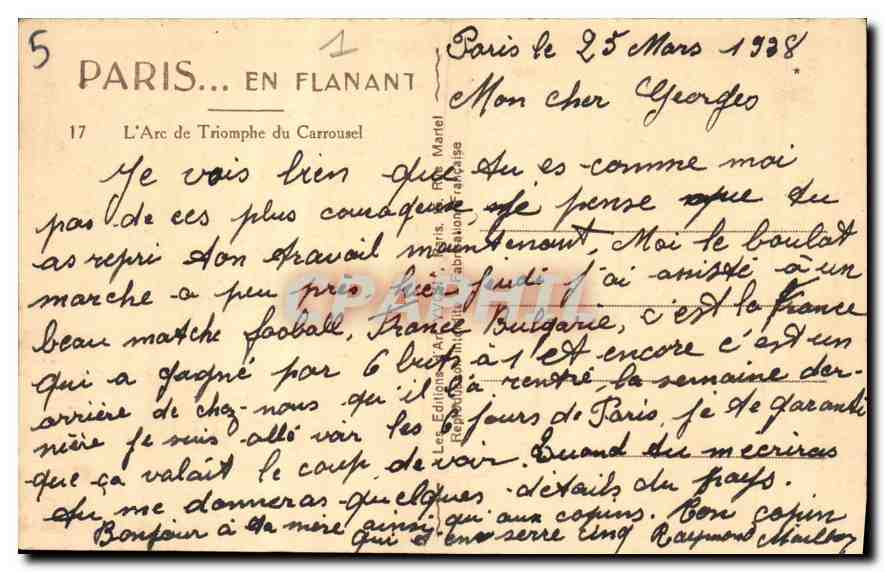 5
1
PARIS... EN FLANANT
17 L'Arc de Triomphe du Carrousel
Paris le 25 Mars 1938
Mon cher Georges
Je vois bien que tu es comme moi
pas de ces plus courageux, je pense que tu
as repri ton travail maintenant. Moi le boulat
marche a peu près hier jeudi j'ai assisté à un
beau matche fooball, France Bulgarie, c'est la France
qui a gagné par 6 buts à 1 et encore c'est un
arrière de chez-nous qu'il l'a rentré la semaine der-
nière je suis allé voir les 6 jours de Paris, je te garanti
que ça valait le coup de voir. Quand tu mecriras
tu me donneras quelques détails du pays.
Bonjour à ta mère ainsi qui aux copins. Ton copin
qui t'en serre cinq Raymond
Les Editions d'Art YVON, Paris, Rue Martel
Reproduction Interdite Fabrication Française
CPAPHIL